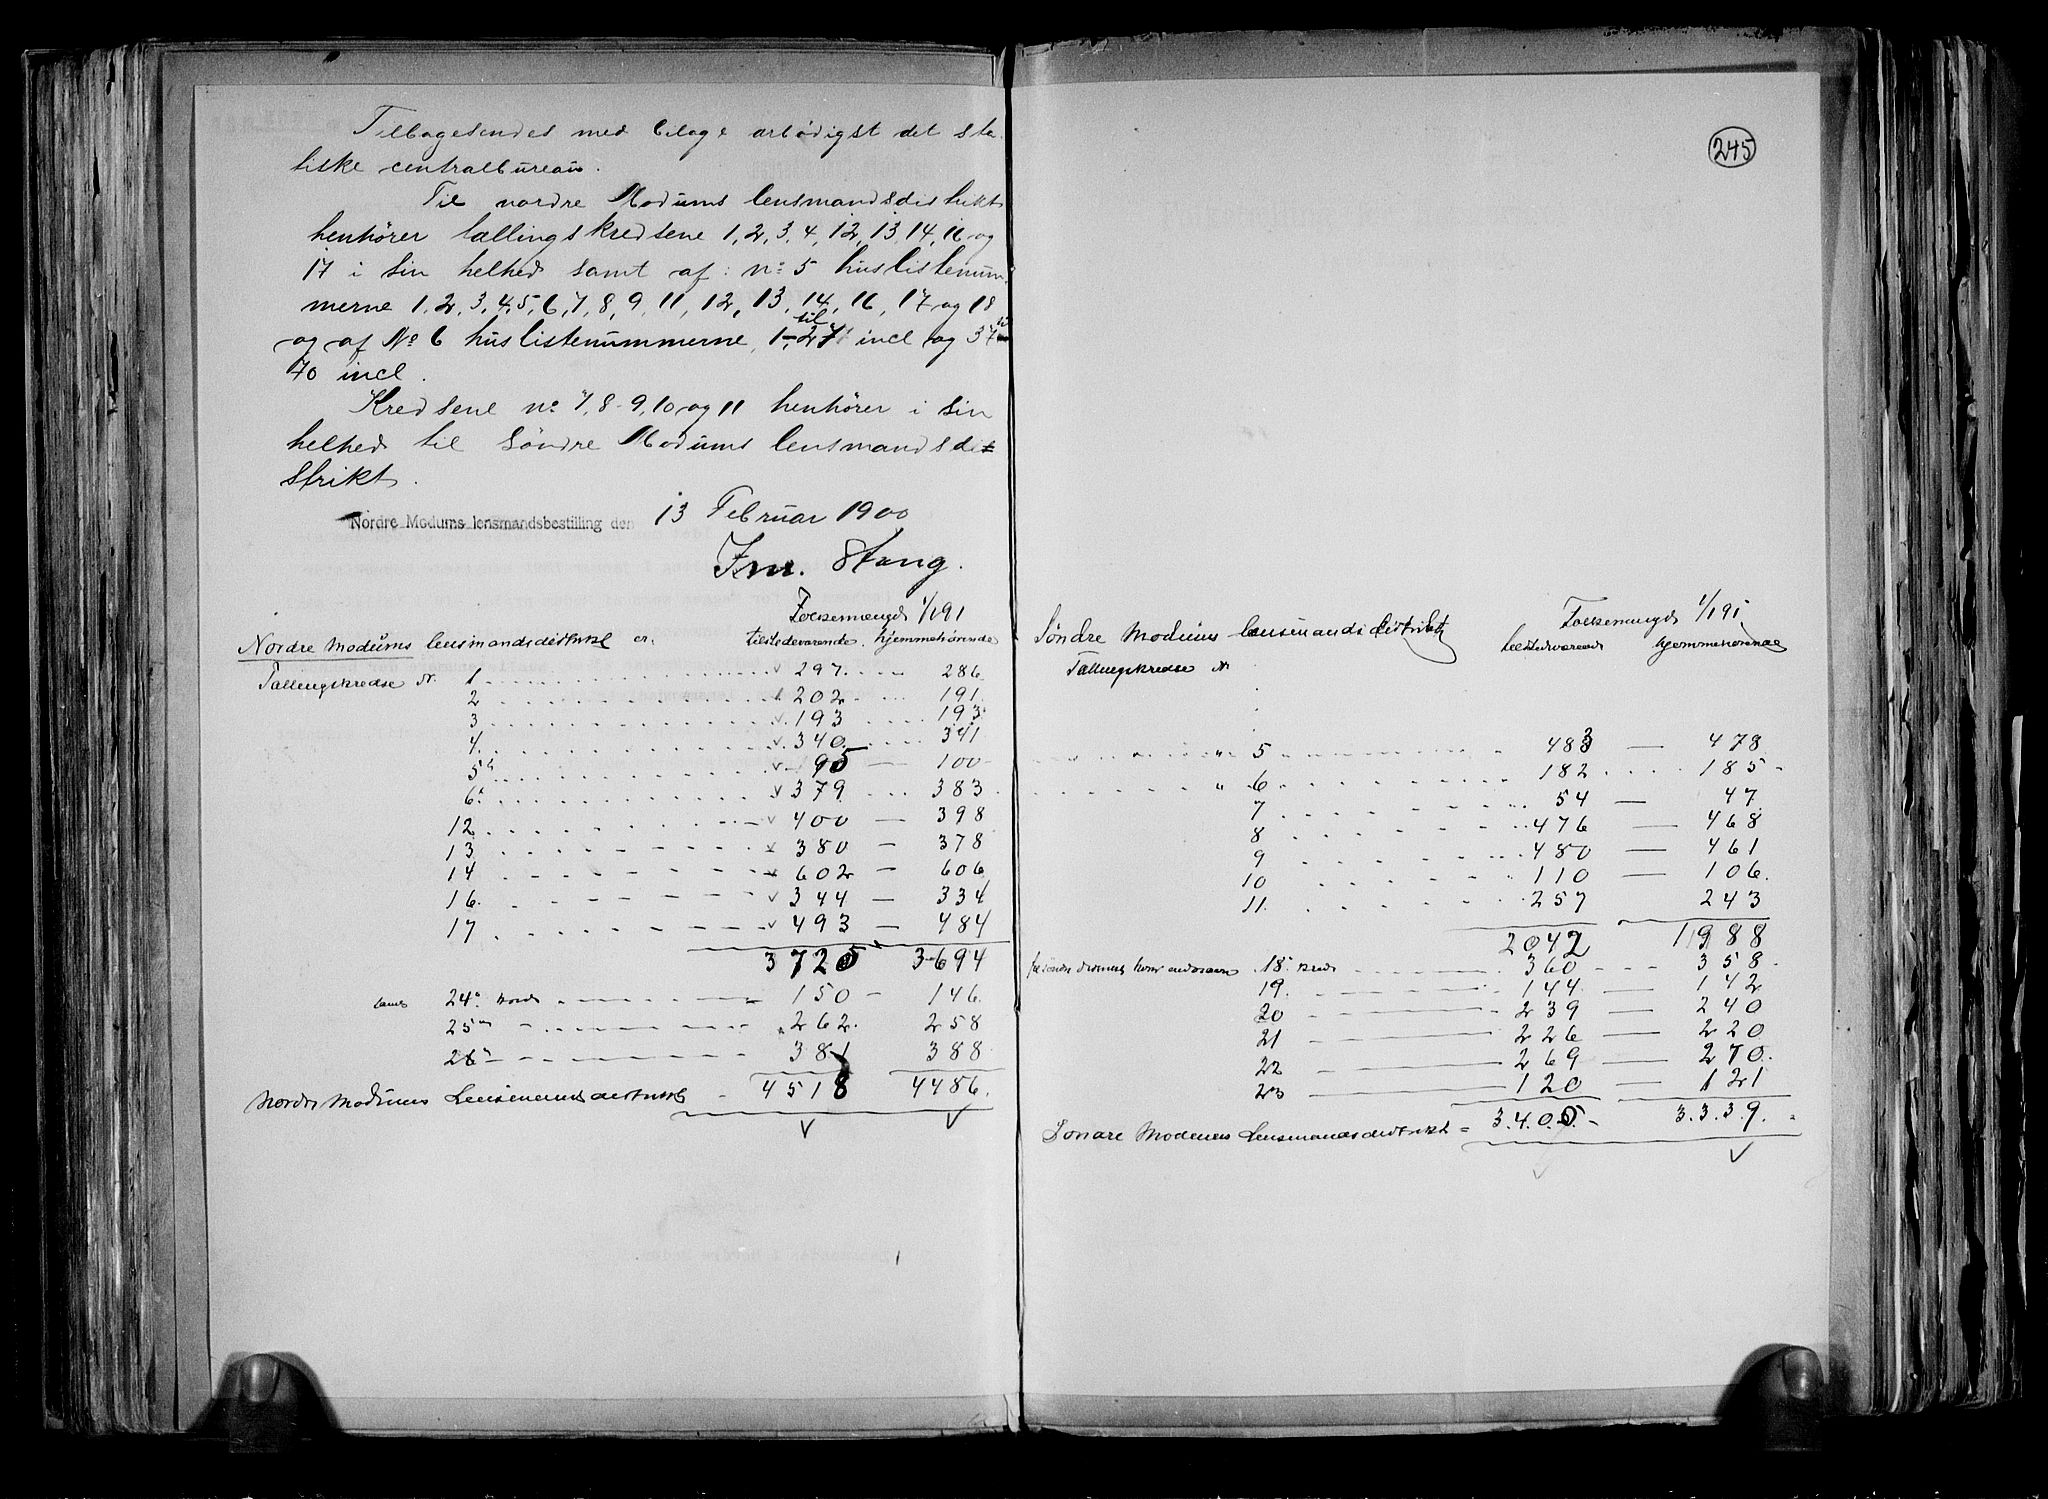 Tilbagesendes med bilage ærbødigst det sta-
tiske centralbureau.
Til nordre Modums lensmandsdistrikt
henhører tællingskredsene 1, 2, 3, 4, 12, 13, 14, 16 og
17 i sin helhed samt af: No 5 huslistenum-
merne 1, 2, 3, 4, 5, 6, 7, 8, 9, 11, 12, 13, 14, 16, 17 og 18
og af No 6 huslistenummerne 1 til 27 incl og 37
70 incl.
Kredsene No 7, 8, 9, 10 og 11 henhører i sin
helhed til søndre Modums lensmandsdi-
strikt.
Nordre Modums lensmandsbestilling den 13 Februar 1900
Im. Stang.
Folkemængd 1/1 91
Nordre Modums lensmandsdistrikt er. tilstedeværende. hjemmehørende
Tællingskredse N. 1 297 286
2 202 191
3 193 193
4. 340 341
5 95 100
6 379 383
12 400 398
13 380 378
14 602 606
16. 344 334
17 493 484
3725 3694
24 Kreds 150 146
25 262 258
26 381 388
4518 4486.
Nordre Modums Lensmandsdistrikt
245
Folkemængd 1/1 91
Søndre Modums lensmandsdistrikt tilstedeværende hjemmehørende
Tællingskredse N
5 483 478
6 182 185
7 54 47
8 476 468
9 480 461
10 110 106.
11. 257 243
2042 1988
18 Kreds 360 358
19. 144 142
20 239 240
21 226 220
22 269 270.
23 120 121
3.4.0.0. 3.3.3.9.
Søndre Modums Lensmandsdistrikt